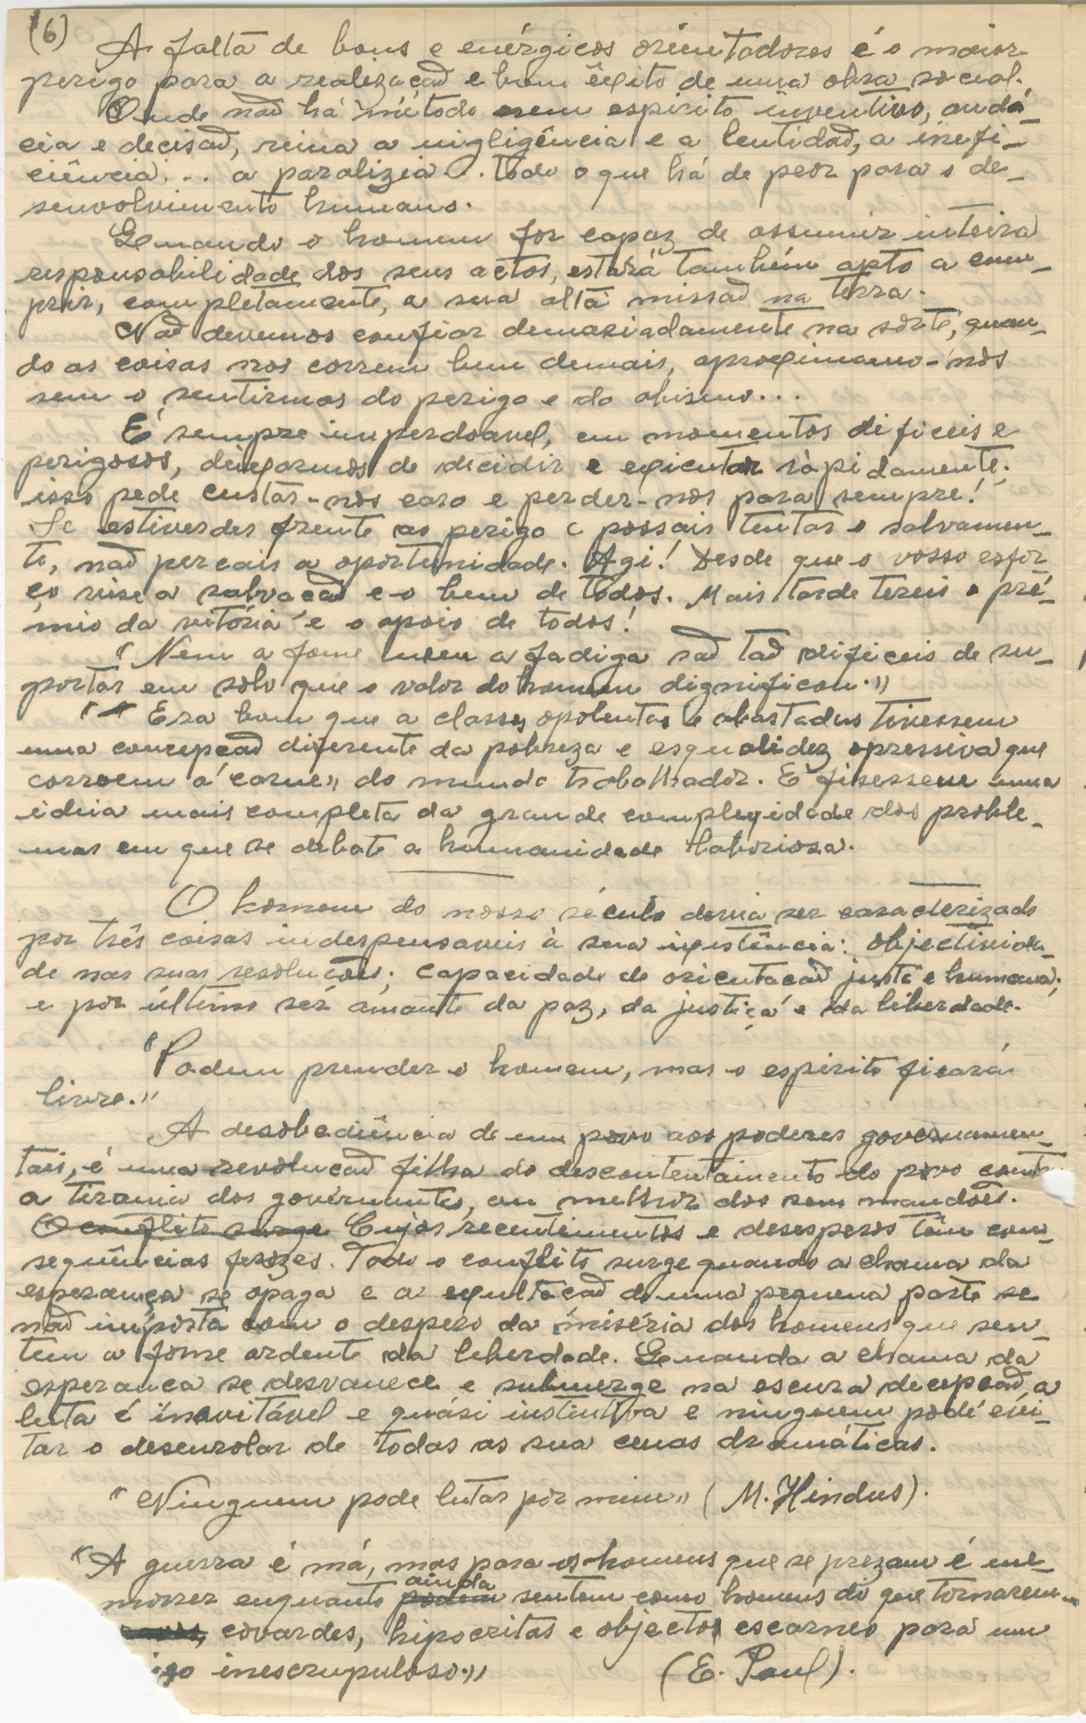 (6)
A falta de bons e enérgicos orientadores é o maior
perigo para a realização e bom êxito de uma obra social.
Onde não há método nem espirito inventivo, audá-
cia e decisão, reina a nigligência e a lentidão, a inefi-
ciência... a paralizia... todo o que há de peor para o de-
senvolvimento humano.
Quando o homem for capaz de assumir inteira
responsabilidade dos seus actos, estará também apto a cum-
prir, completamente, a sua alta missão na terra.
Não devemos confiar demasiadamente na sorte, quan-
do as coisas nos correm bem demais, aproximamo-nos
sem o sentirmos do perigo e do abismo...
É sempre imperdoavel, em momentos dificeis e
perigosos, deixarmos de decidir e executar ràpidamente.
isso pede custar-nos caro e perder-nos para sempre!
Se estiverdes frente ao perigo e possais tentar o salvamen-
to, não percais a oportunidade. Agi! Desde que o vosso esfor-
ço vise a salvação e o bem de todos. Mais tarde tereis o pré-
mio da vitória e o apoio de todos!
"Nem a fome nem a fadiga são tão dificeis de su-
portar em solo que o valor do homem dignificou."
" Era bom que a classes opolentas e abastadas tivessem
uma concepção diferente da pobreza e esqualidez opressiva que
corroem a "carne" do mundo trabalhador. E fisessem uma
ideia mais completa da grande complexidade dos proble-
mas em que se debate a humanidade laboriosa.
O homem do nosso século devia ser caracterizado
por três coisas indespensaveis à sua existência: objectivida-
de nas suas resoluções; capacidade de orientação justa e humana;
e por último ser amante da paz, da justiça e da liberdade.
"Podem prender o homem, mas o espirito ficará
livre."
A desobediência de um povo aos poderes governamen-
tais, é uma revolução filha do descontentamento do povo contra
a tirania dos governantes, ou melhor dos seus mandões.
O conflito surge Cujos recentimentos e desesperos têm con-
sequências ferozes. Todo o conflito surge quando a chama da
esperança se apaga e a exultação de uma pequena parte se
não importa com o despero da miséria dos homens que sen-
tem a fome ardente da liberdade. Quando a chama da
esperança se desvanece e submerge na escura decepção, a
luta é inevitável e quási instintiva e ninguem pode evi-
tar o desenrolar de todas as sua cenas dramáticas.
"Ninguem pode lutar por mim" (M. Hindus).
"A guerra é má, mas para os homens que se prezam é
morrer enquanto ainda sentem como homens do que tornarem-
covardes, hipocritas e objectos escarneo para um
inescrupuloso." (E. Paul).